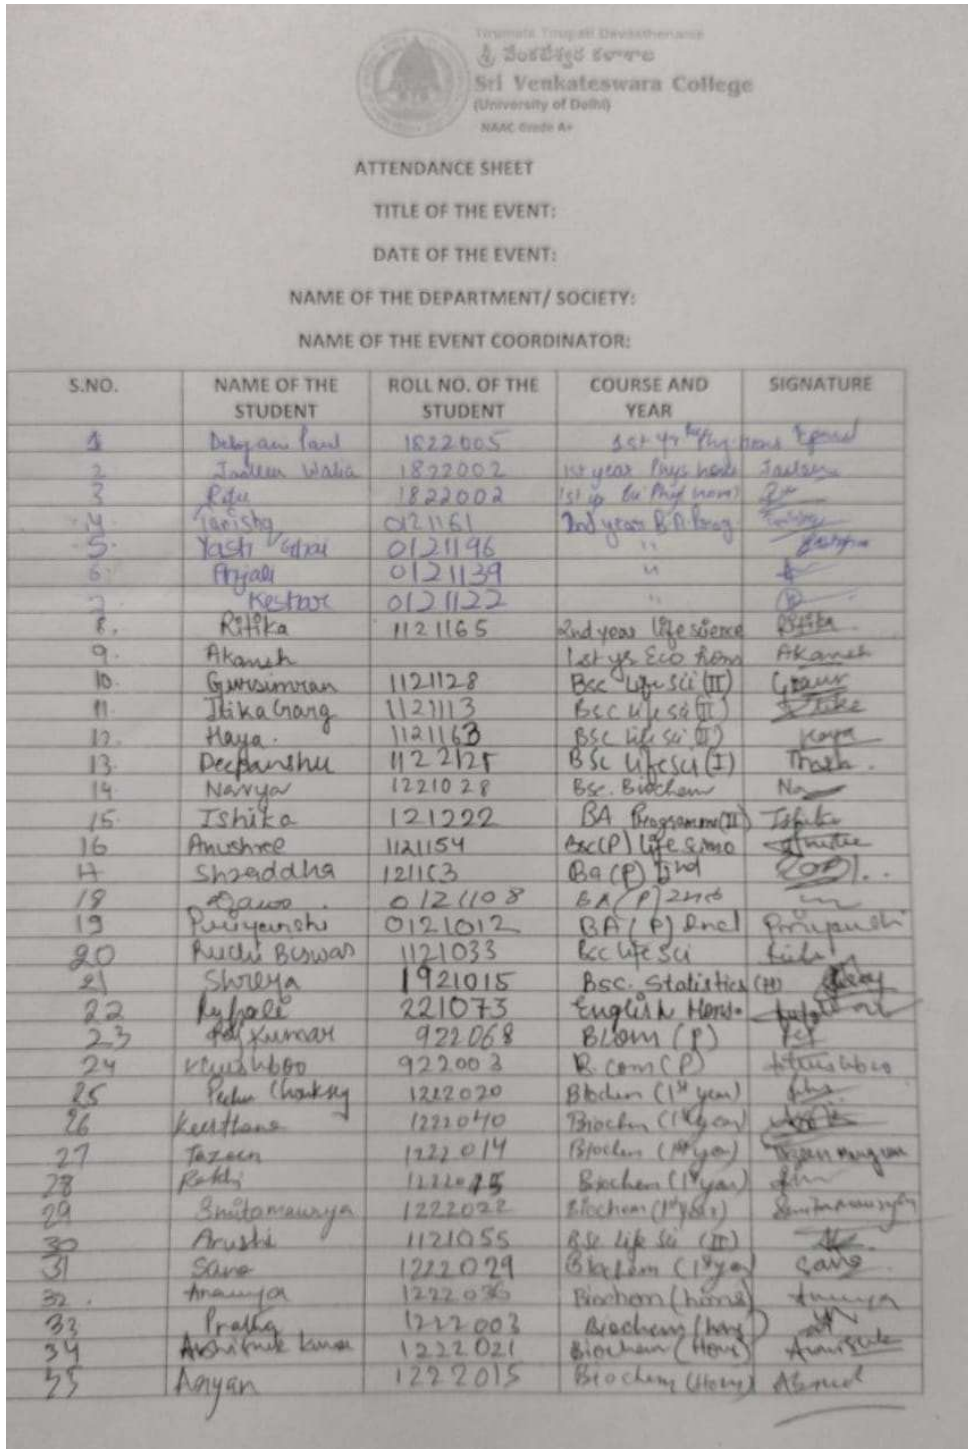 Tirumala Tirupati Devasthanams
శ్రీ వేంకటేశ్వర కళాశాల
Sri Venkateswara College
(University of Delhi)
NAAC Grade A+
ATTENDANCE SHEET
TITLE OF THE EVENT:
DATE OF THE EVENT:
NAME OF THE DEPARTMENT/ SOCIETY:
NAME OF THE EVENT COORDINATOR:
S.NO. NAME OF THE STUDENT ROLL NO. OF THE STUDENT COURSE AND YEAR SIGNATURE
1 Debjan Paul 1822005 1st yr
2 Walia 1822002 1st year Phys hons
3 Ritu 1822002 1st
4 Tanishq 0121161 2nd year B.A. Prog
5. Yash Ghai 0121196 "
6. Anjali 0121139 "
7. Keshav 0121122 "
8. Ritika 1121165 2nd year life science Ritika
9. Akansh 1st yr Eco hons Akansh
10. Gursimran 1121128 Bsc life sci (II)
11. Itika Garg 1121113 BSC life sci (II)
12. Haya. 1121163 BSC life sci (II) Haya
13. Deepanshu 1122125 BSc lifesci (I)
14 Navya 1221028 Bsc. Biochem
15. Ishika 121222 BA Programme (II) Ishika
16 Anushree 1121154 Bsc(P) life
17 Shraddha 121163 Ba (P) IInd
18 0121108 BA (P) 2nd
19 Priyanshi 0121012 BA (P) 2nd Priyanshi
20 Ruchi Biswas 1121033 Bsc life sci
21 Shreya 1921015 Bsc. Statistics (H)
22 Rupali 221073 English Hons.
23 Kumar 922068 BCom (P)
24 Khushboo 922003 B.com (P) Khushboo
25 1222020 Biochem (1st year)
26 Keerthana 1222040 Biochem (1st year)
27 Tazeen 1222014 Biochem (1st year) Tazeen
28 Rakhi 12220 Biochem (1st year)
29 Smita maurya 1222022 Biochem (1st year) Smita maurya
30 Arushi 1121055 BSc. Life Sci (II)
31 Sana 1222029 Biochem (1st year) Sana
32. Ananya 1222036 Biochem (hons) Ananya
33 1222003 Biochem (hons)
34 1222021 Biochem (Hons)
35 Aayan 1222015 Biochem (Hons)